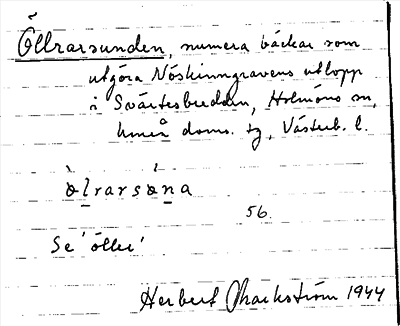 Öllrarsunden, numera bäckar som
utgöra Nöskinngravens utlopp
i Svärtesbredden, Holmöns sn,
Umeå doms. tg, Västerb. l.
ò̀lrarsǝ́na
56.
Se 'öller'
Herbert Markström 1944